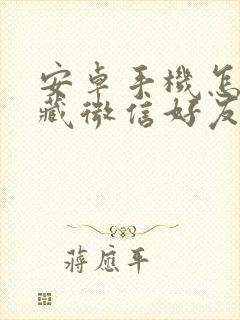 安卓手機怎
藏微信好友
蔣應平